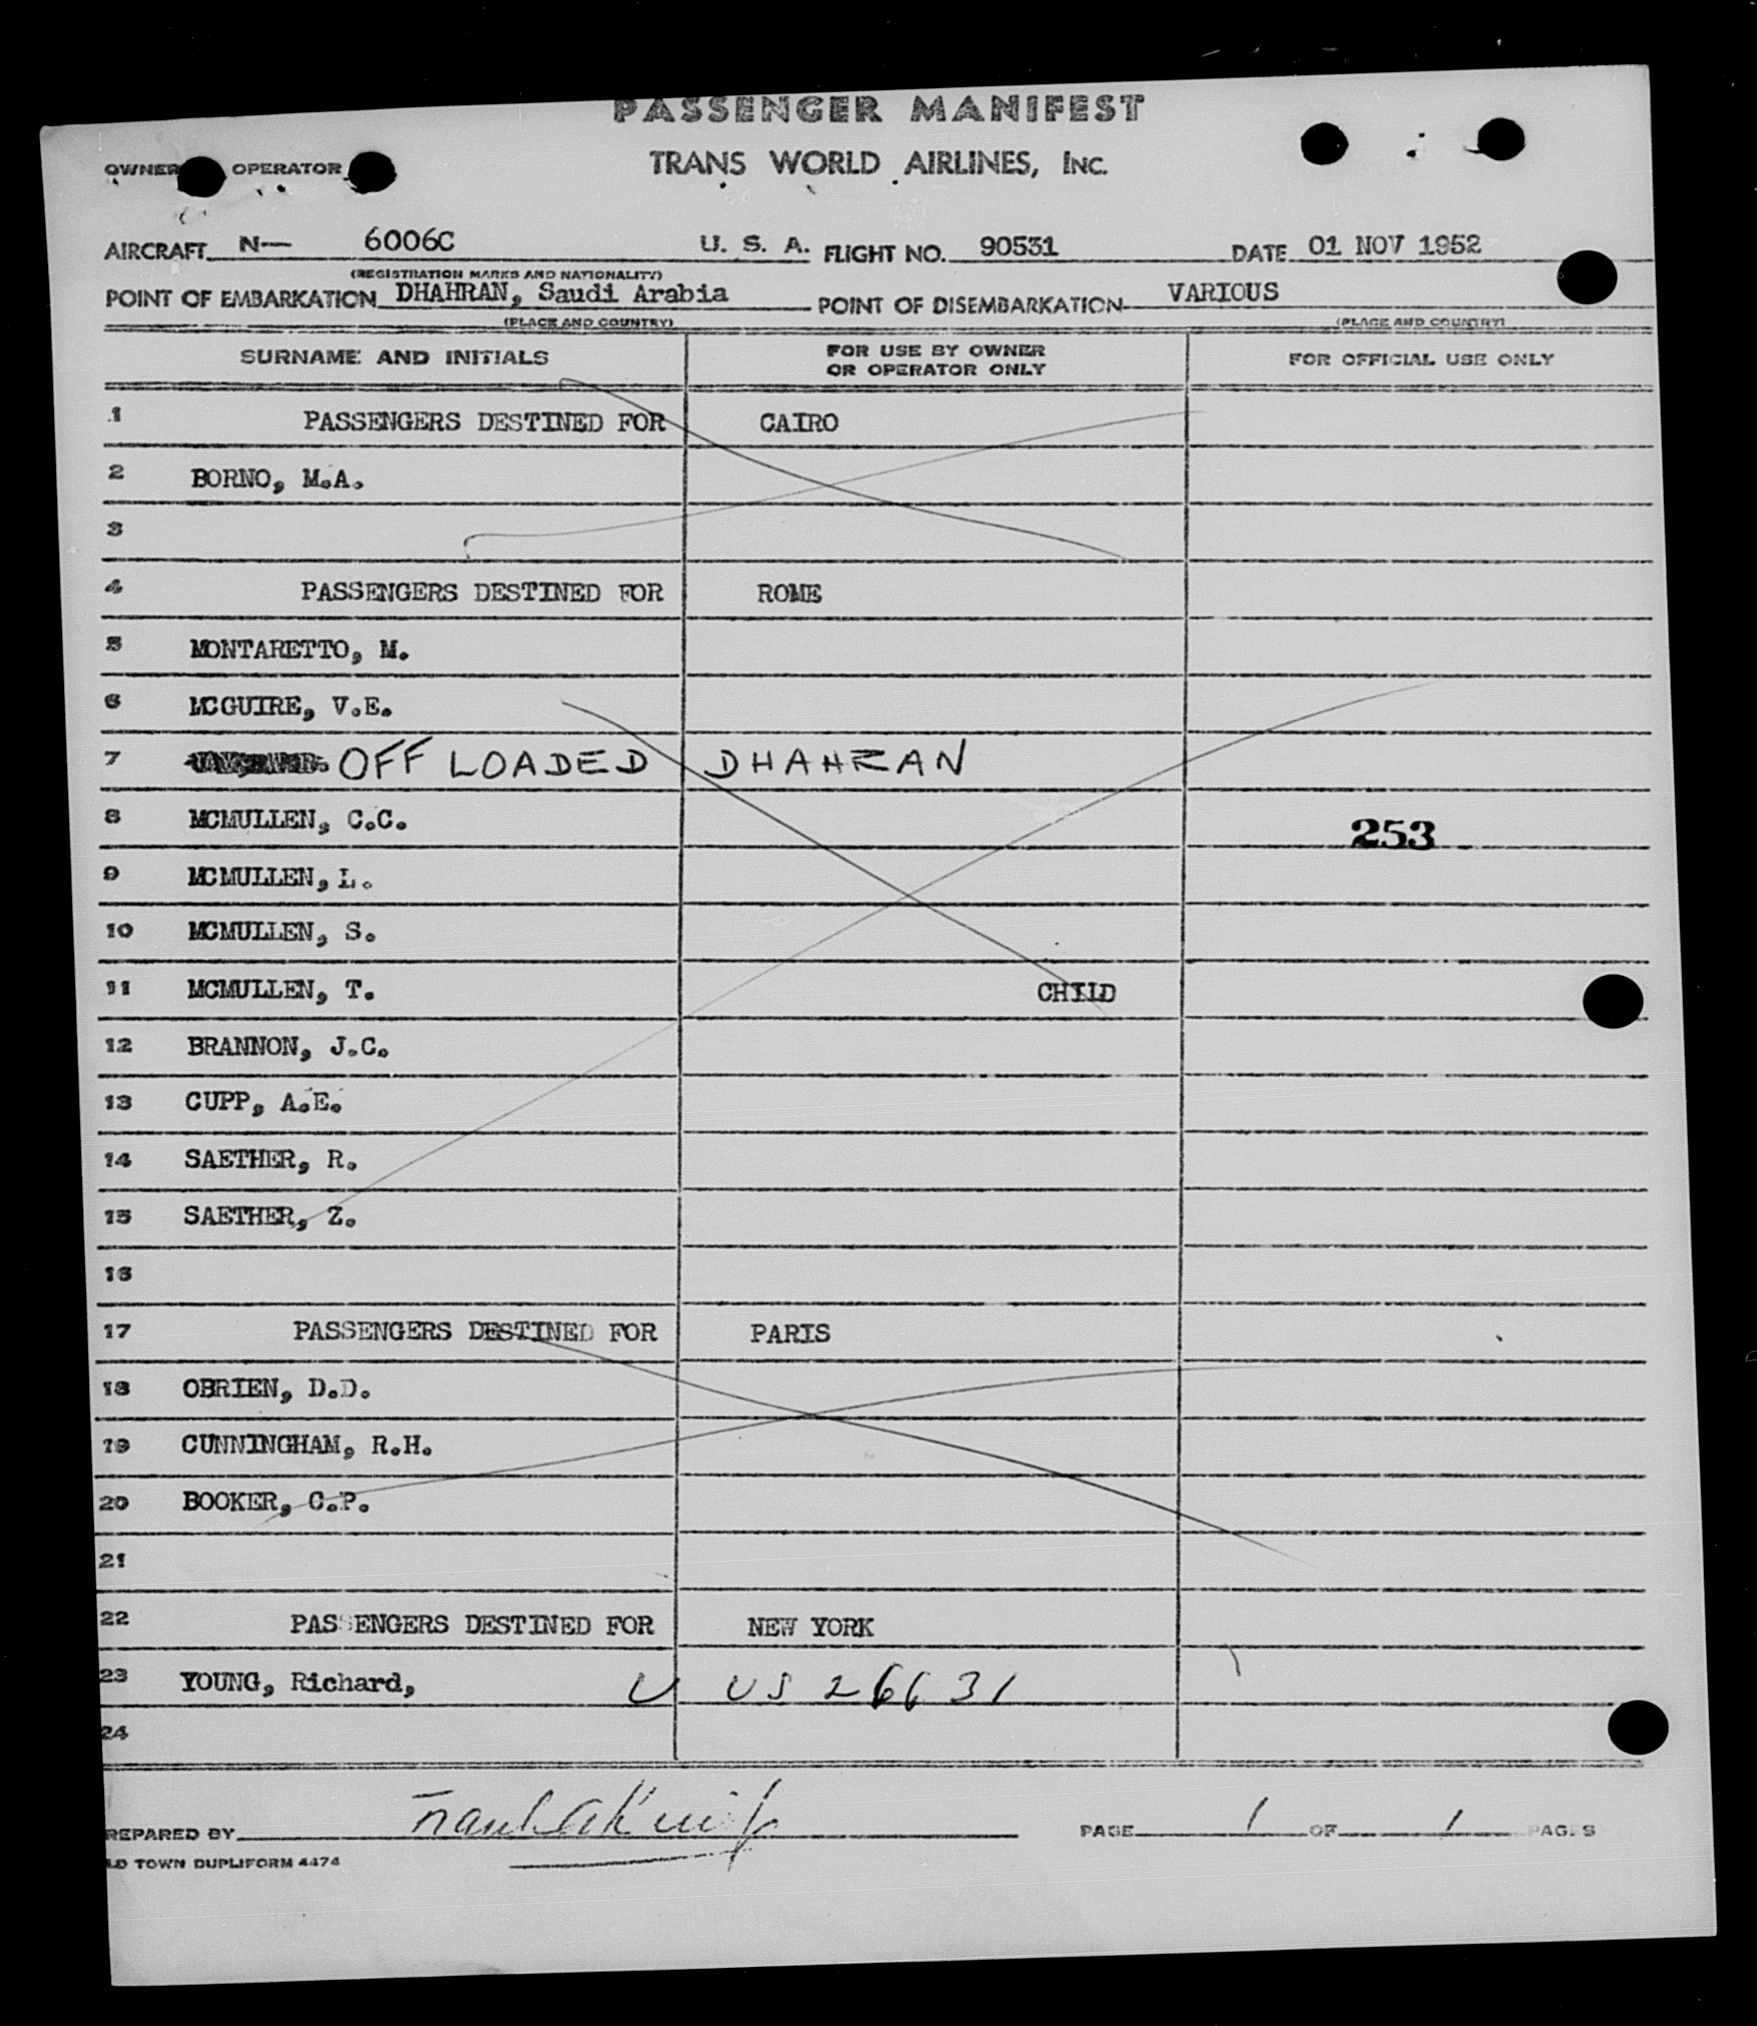 PASSENGER MANIFEST
OWNER OPERATOR TRANS WORLD AIRLINES, INC.
AIRCRAFT N— 6006C U. S. A. FLIGHT NO. 90531 DATE 01 NOV 1952
(REGISTRATION MARKS AND NATIONALITY)
POINT OF EMBARKATION DHAHRAN, Saudi Arabia POINT OF DISEMBARKATION VARIOUS
(PLACE AND COUNTRY) (PLACE AND COUNTRY)
SURNAME AND INITIALS FOR USE BY OWNER OR OPERATOR ONLY FOR OFFICIAL USE ONLY
1 PASSENGERS DESTINED FOR CAIRO
2 BORNO, M.A.
3
4 PASSENGERS DESTINED FOR ROME
5 MONTARETTO, M.
6 MCGUIRE, V.E.
7 OFF LOADED DHAHRAN
8 MCMULLEN, C.C. 253
9 MCMULLEN, L.
10 MCMULLEN, S.
11 MCMULLEN, T. CHILD
12 BRANNON, J.C.
13 CUPP, A.E.
14 SAETHER, R.
15 SAETHER, Z.
16
17 PASSENGERS DESTINED FOR PARIS
18 OBRIEN, D.D.
19 CUNNINGHAM, R.H.
20 BOOKER, C.P.
21
22 PASSENGERS DESTINED FOR NEW YORK
23 YOUNG, Richard, U US 26631
24
PREPARED BY PAGE 1 OF 1 PAGES
LD TOWN DUPLIFORM 4474